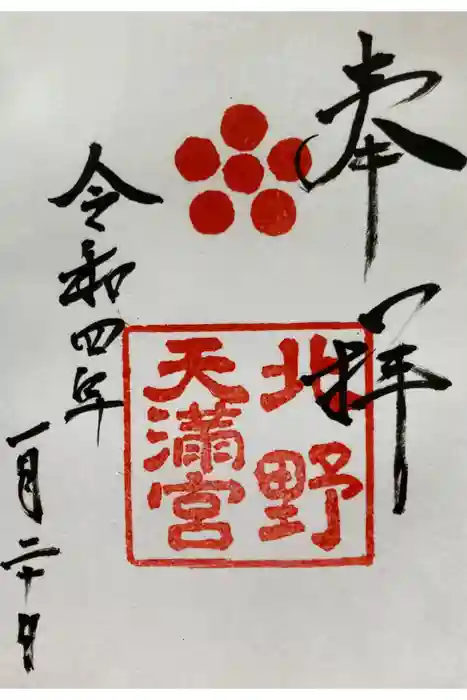 奉拝
北野
天満宮
令和四年
一月二十日